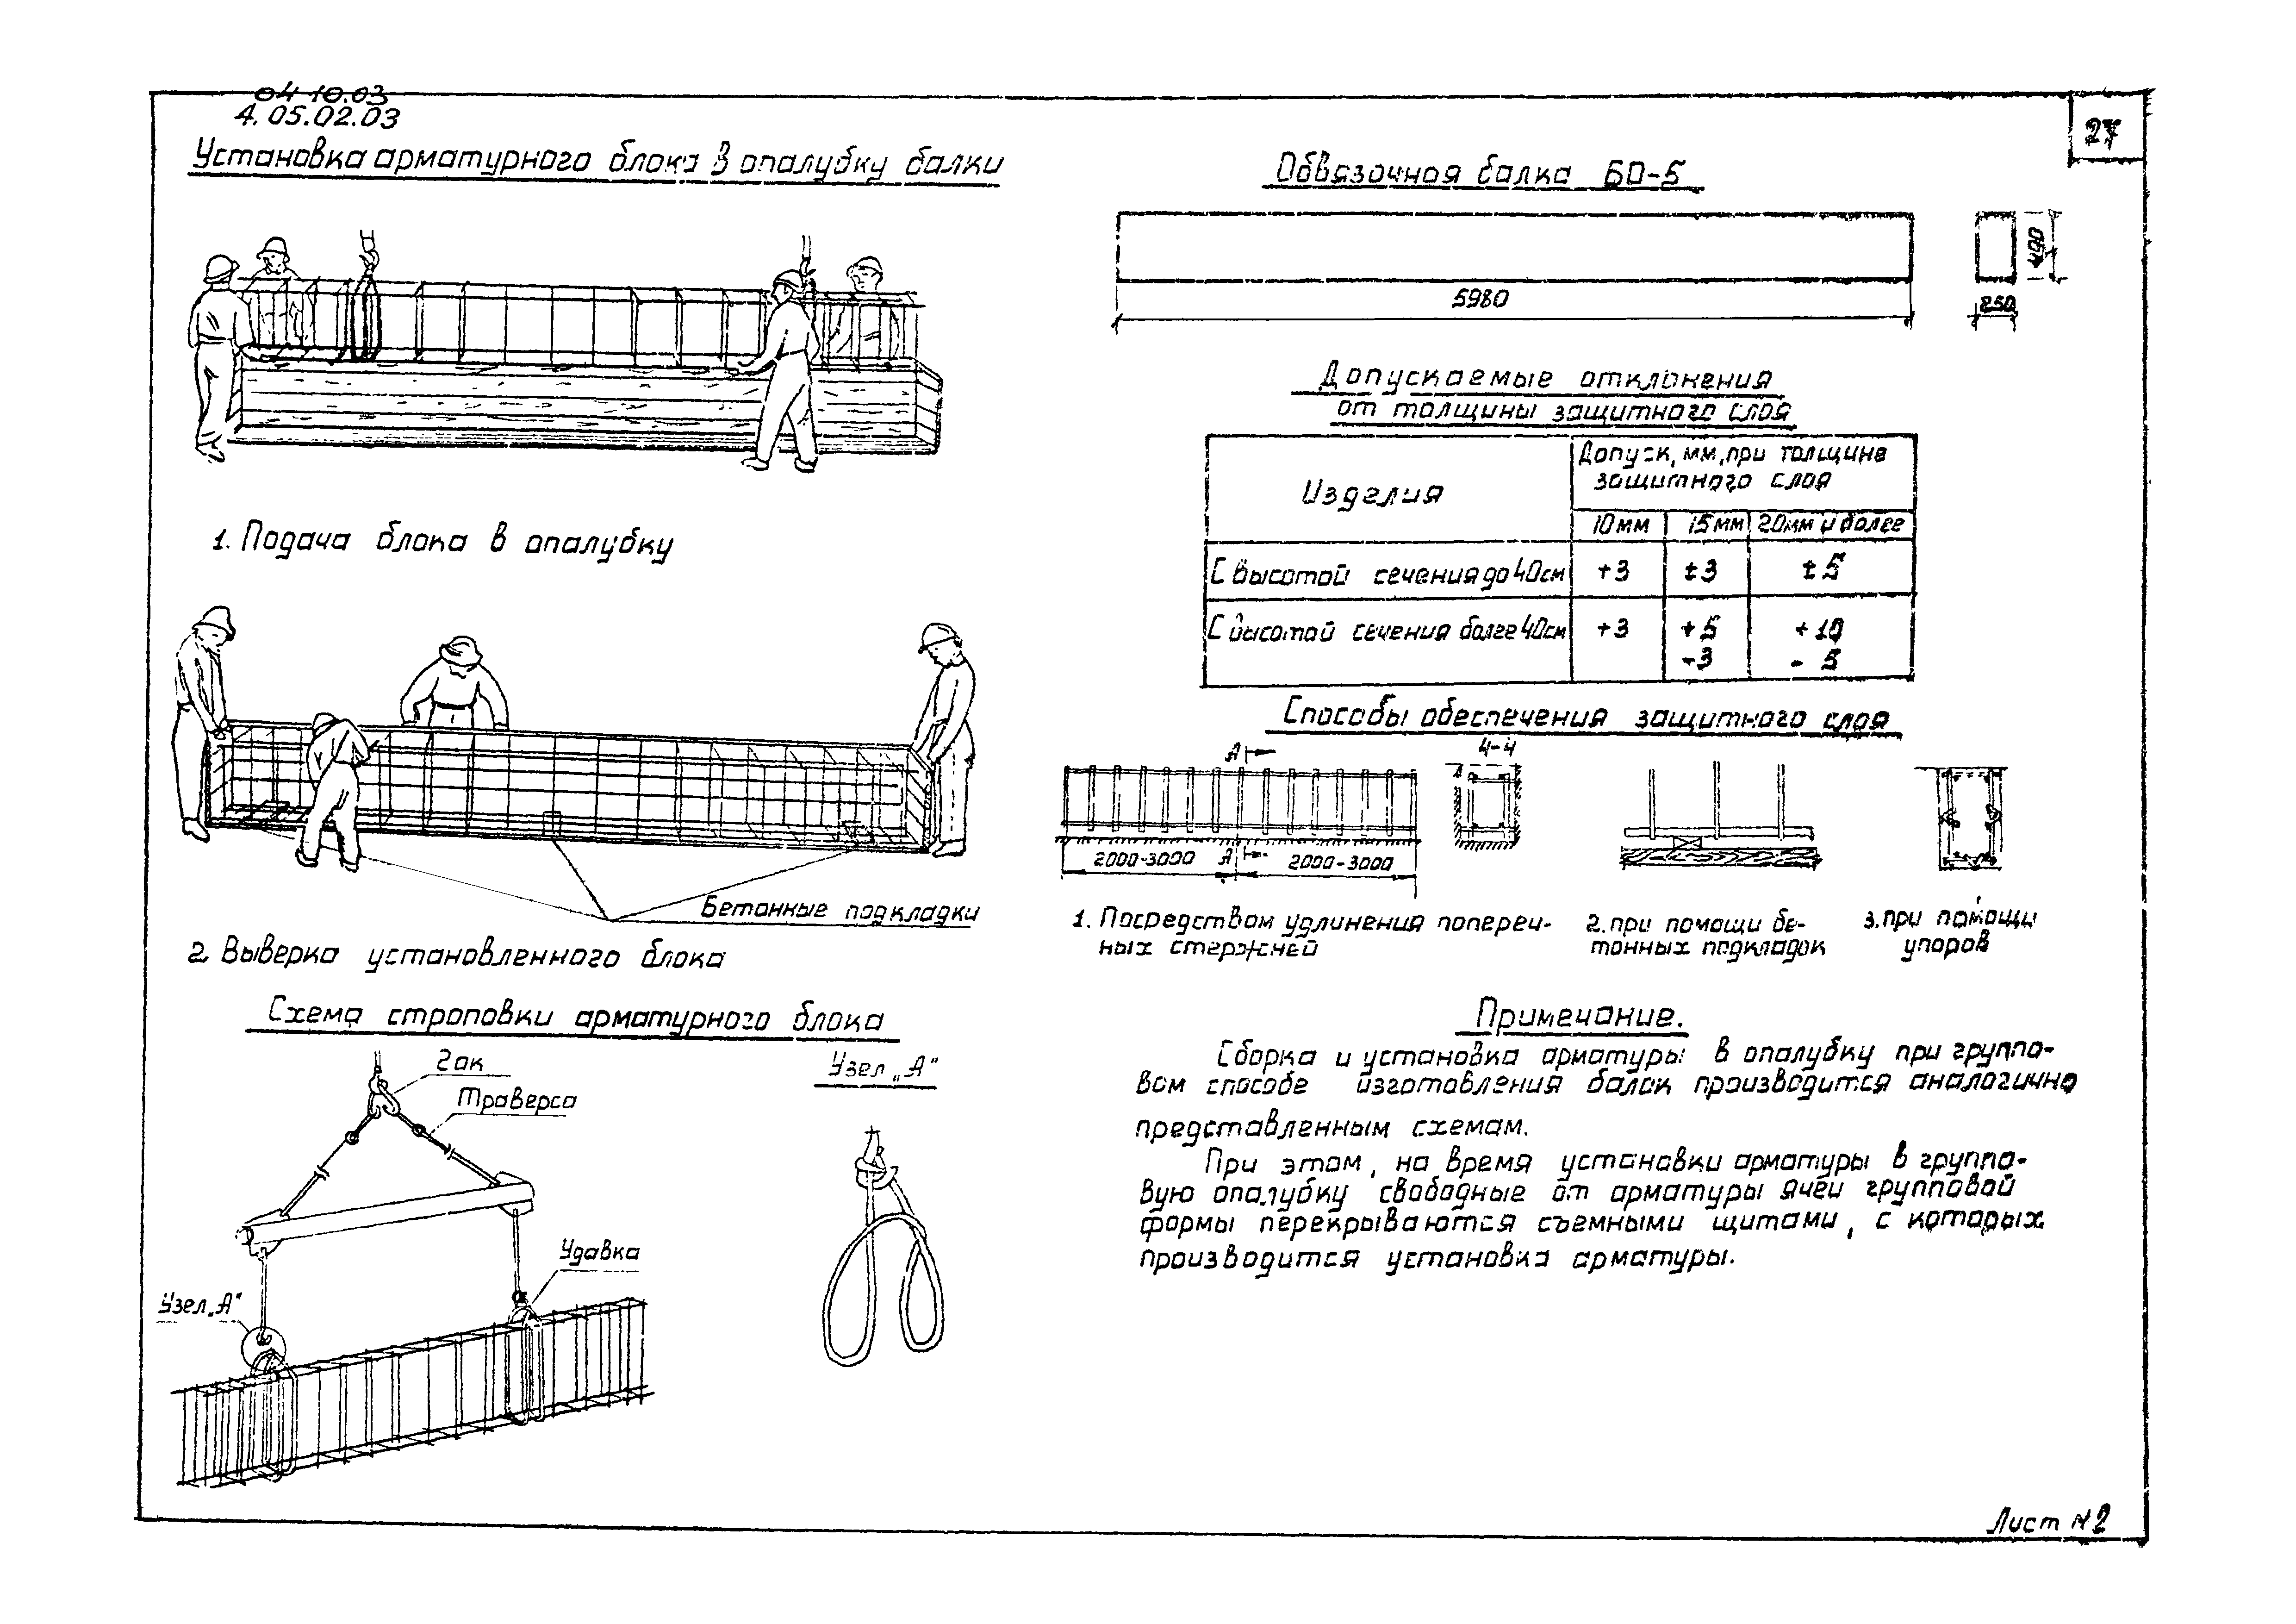 04 10.03
4.05.02.03
27
Установка арматурного блока в опалубку балки
1. Подача блока в опалубку
Бетонные подкладки
2. Выверка установленного блока
Схема строповки арматурного блока
Гак
Траверса
Удавка
Узел „А"
Узел „А"
Обвязочная балка БО-5
5980
490
250
Допускаемые отклонения
от толщины защитного слоя
Изделия
Допуск, мм, при толщине
защитного слоя
10мм 15мм 20мм и более
С высотой сечения до 40см +3 ±3 ±5
С высотой сечения более 40см +3 +5 +10
-3 - 5
Способы обеспечения защитного слоя
А
4-4
2000-3000 А 2000-3000
1. Посредством удлинения попереч-
ных стержней
2. при помощи бе-
тонных подкладок
3. при помощи
упоров
Примечание.
Сборка и установка арматуры в опалубку при группо-
вом способе изготовления балок производится аналогично
представленным схемам.
При этом, на время установки арматуры в группо-
вую опалубку свободные от арматуры ячеи групповой
формы перекрываются съемными щитами, с которых
производится установка арматуры.
Лист №2